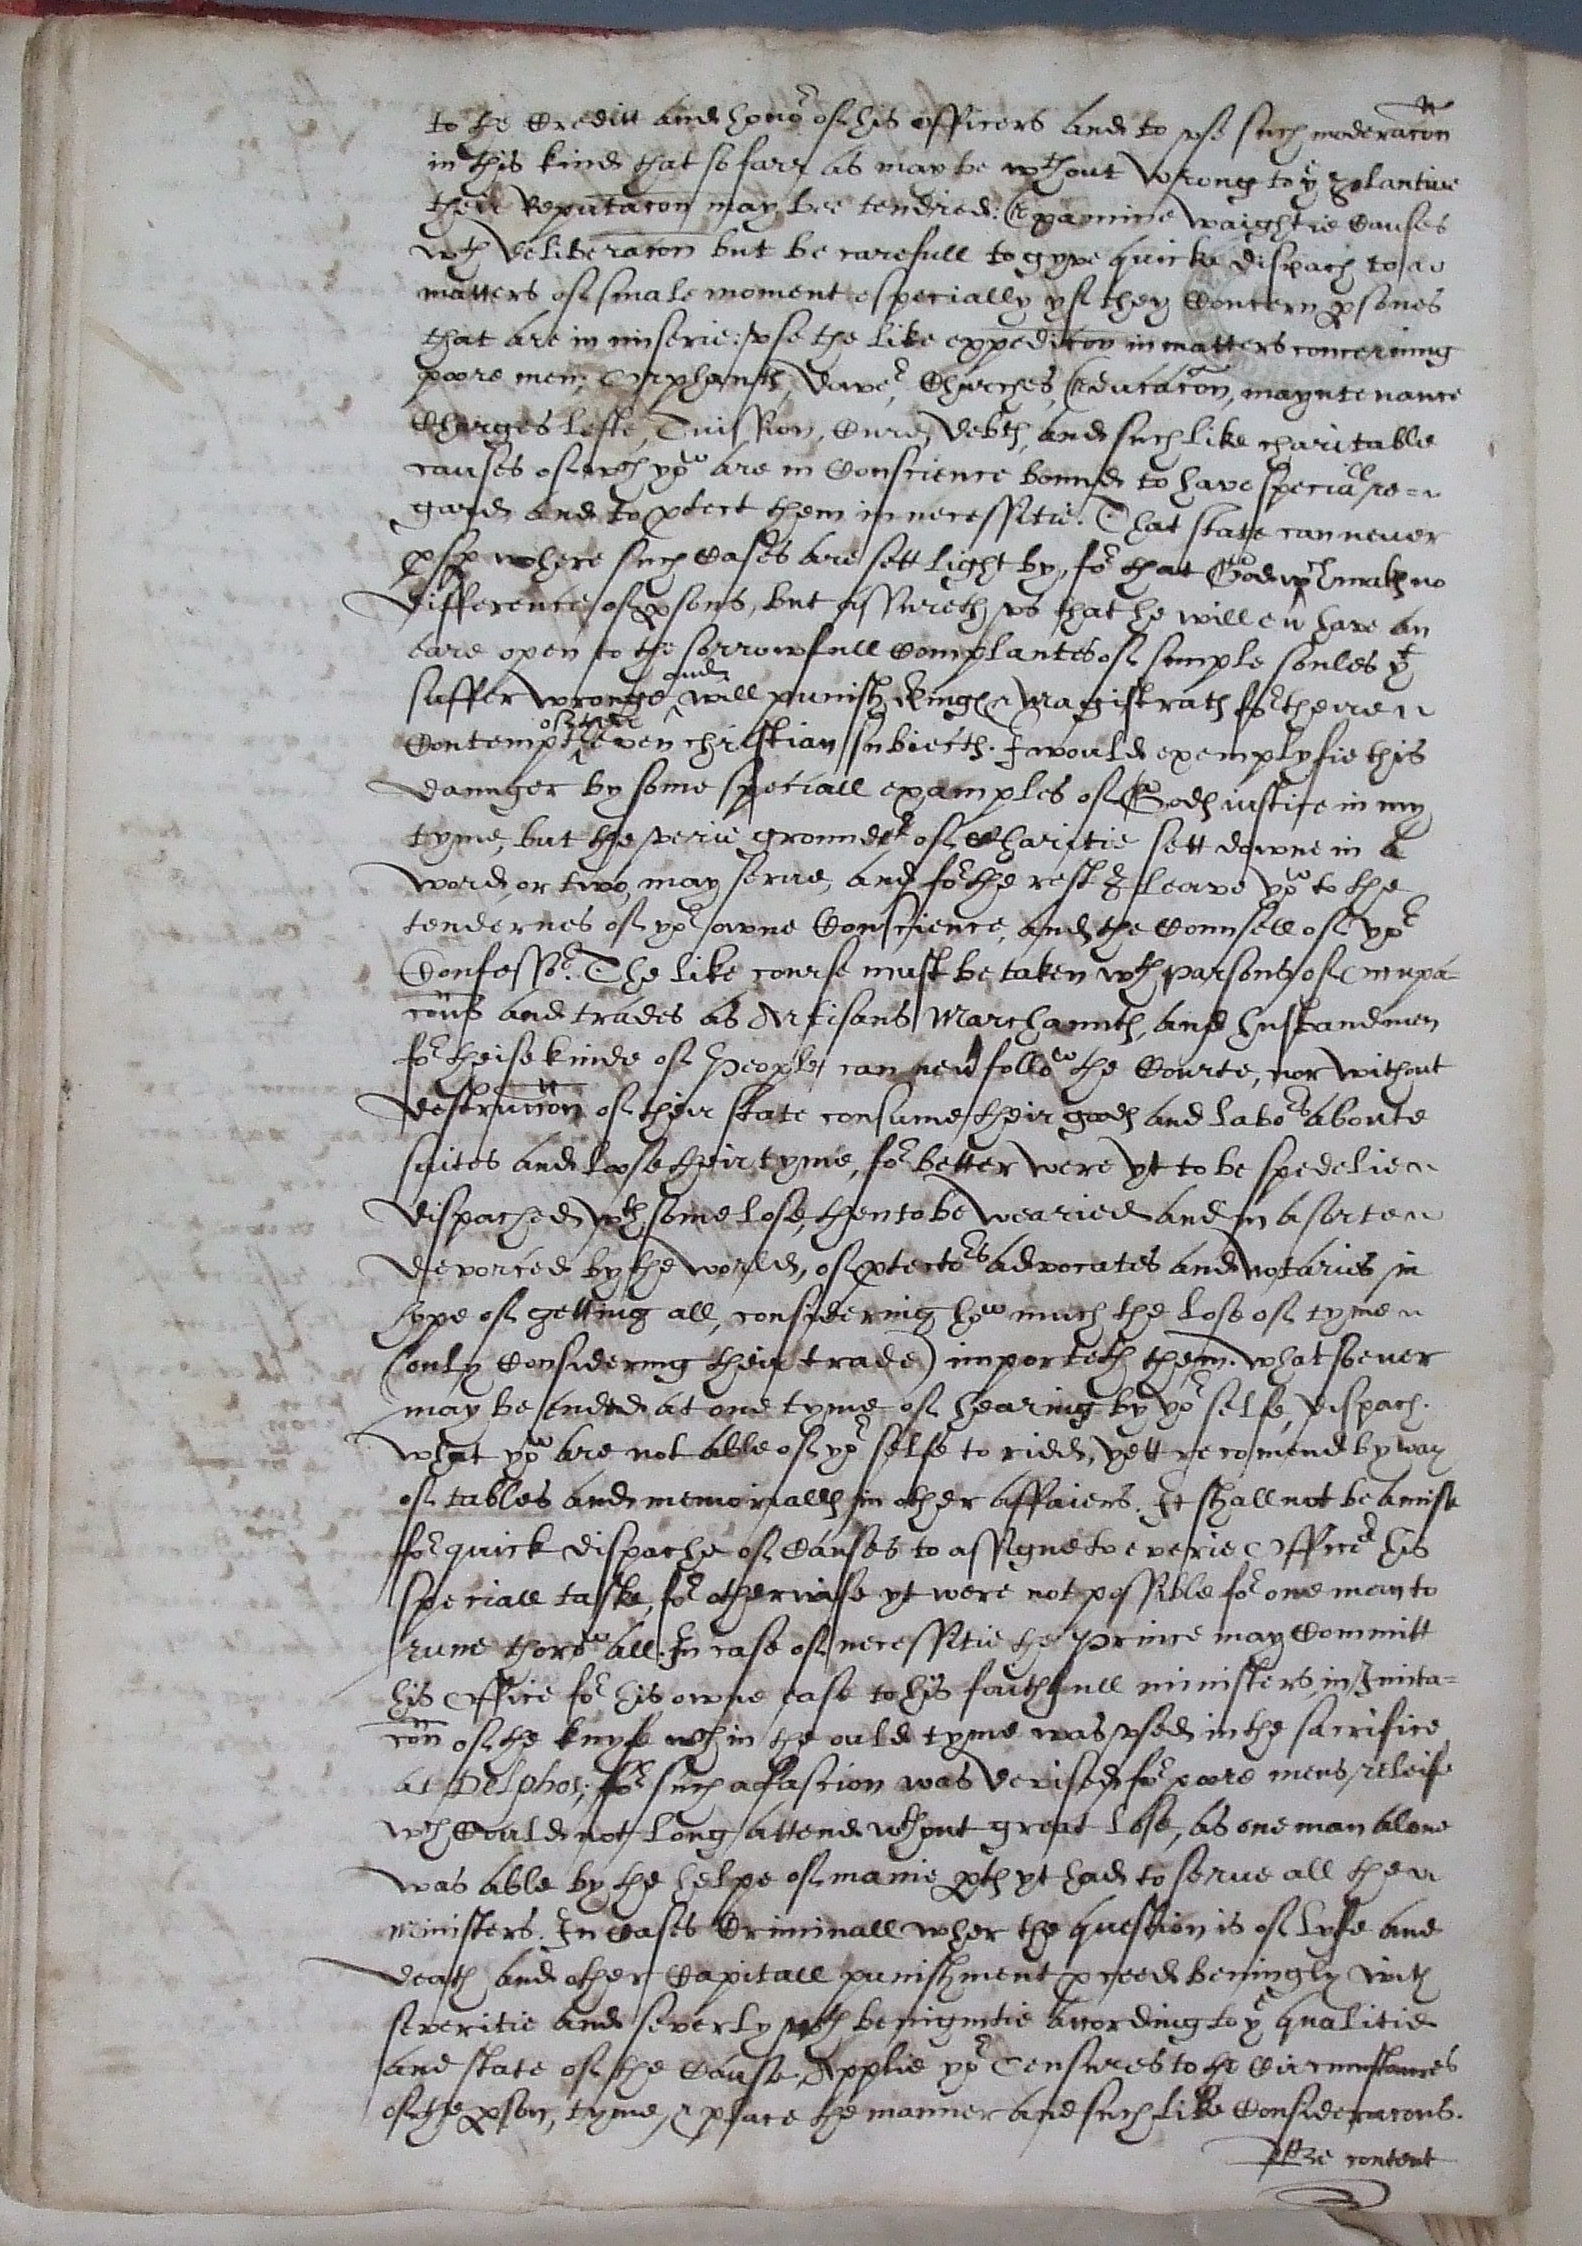 to the Creditt and honor of his officers and to vse such moderacon
in this kinde that so farr as may be wthout wrong to ye plantiue
their Reputacon may bee tendred. Examine waightie Causes
wth deliberacon but be carefull to gyve quicke dispach to
matters of smale moment especially yf they Concern psones
that are in miserie: vse the like expedicon in matters concerning
poore men, Orphants, Dower, Churches, Educacon, mayntenance
Charges lesse, Tuission, Cure, debts, and such like charitable
causes of wch you are in Conscience bound to have speciall re=
gard and to ptect them in necessitie. That state can never
psp where such Cases are sett light by, for that God wch maketh no
difference of psons, but assureth vs that he will eu have an
eare open to the sorrowfull Complantes of simple soules yt
suffer wronge and will punish Kings & Magistrats for there
Contempt of there even christian subiects. I would exemplyfie this
daunger by some speciall examples of Gods iustice in my
tyme, but the verie groundes of Charitie sett downe in a
word, or two, may serue, and for the rest I leave you to the
tendernes of yor owne Conscience, and the Counsell of yor
Confessor. The like course must be taken wth parsons of Occupa=
cons and trades as Artisans Marchaunts, and husbandmen
for theise kinde of People can neu follow the Courte, nor without
destruccon of their state consume their goods and labors aboute
suites and loose their tyme, for better were yt to be spedelie
dispached wth some lose, then to be wearied and in a sorte
devorced by the world, of ptectors advocates and notaries in
hope of getting all, considering how much the lose of tyme
(only Considering their trade) importeth them. Whatsoever
may be ended at one tyme of hearing by yor selfe, dispach.
What you are not able of yor selfe to ridd, yett recomend by way
of tables and memorialls in other affaiers. It shall not be amisse
for quick dispache of Causes to assigne to everie Officer his
speciall taske, for otherwise yt were not possible for one man to
runne thorow all. In case of necessitie the Prince may Committ
his Office for his owne ease to his faithfull ministers, in Imita=
con of the knyfe wch in the ould tyme was vsed in the sacrifice
at Delphos; for such a fascion was devised for poore mens releife
wch Could not long attend wthout great lose, as one man alone
was able by the helpe of manie pts yt had to serue all the
Ministers. In Cases Criminall wher the question is of lyfe and
death and other Capitall punishment pceed beningly with
severitie and severly wth benignitie according to ye qualitie
and state of the Cause, Applie yor Censures to the Circumstances
of the pson, tyme, & place the manner and such like Consideracons.
Be content